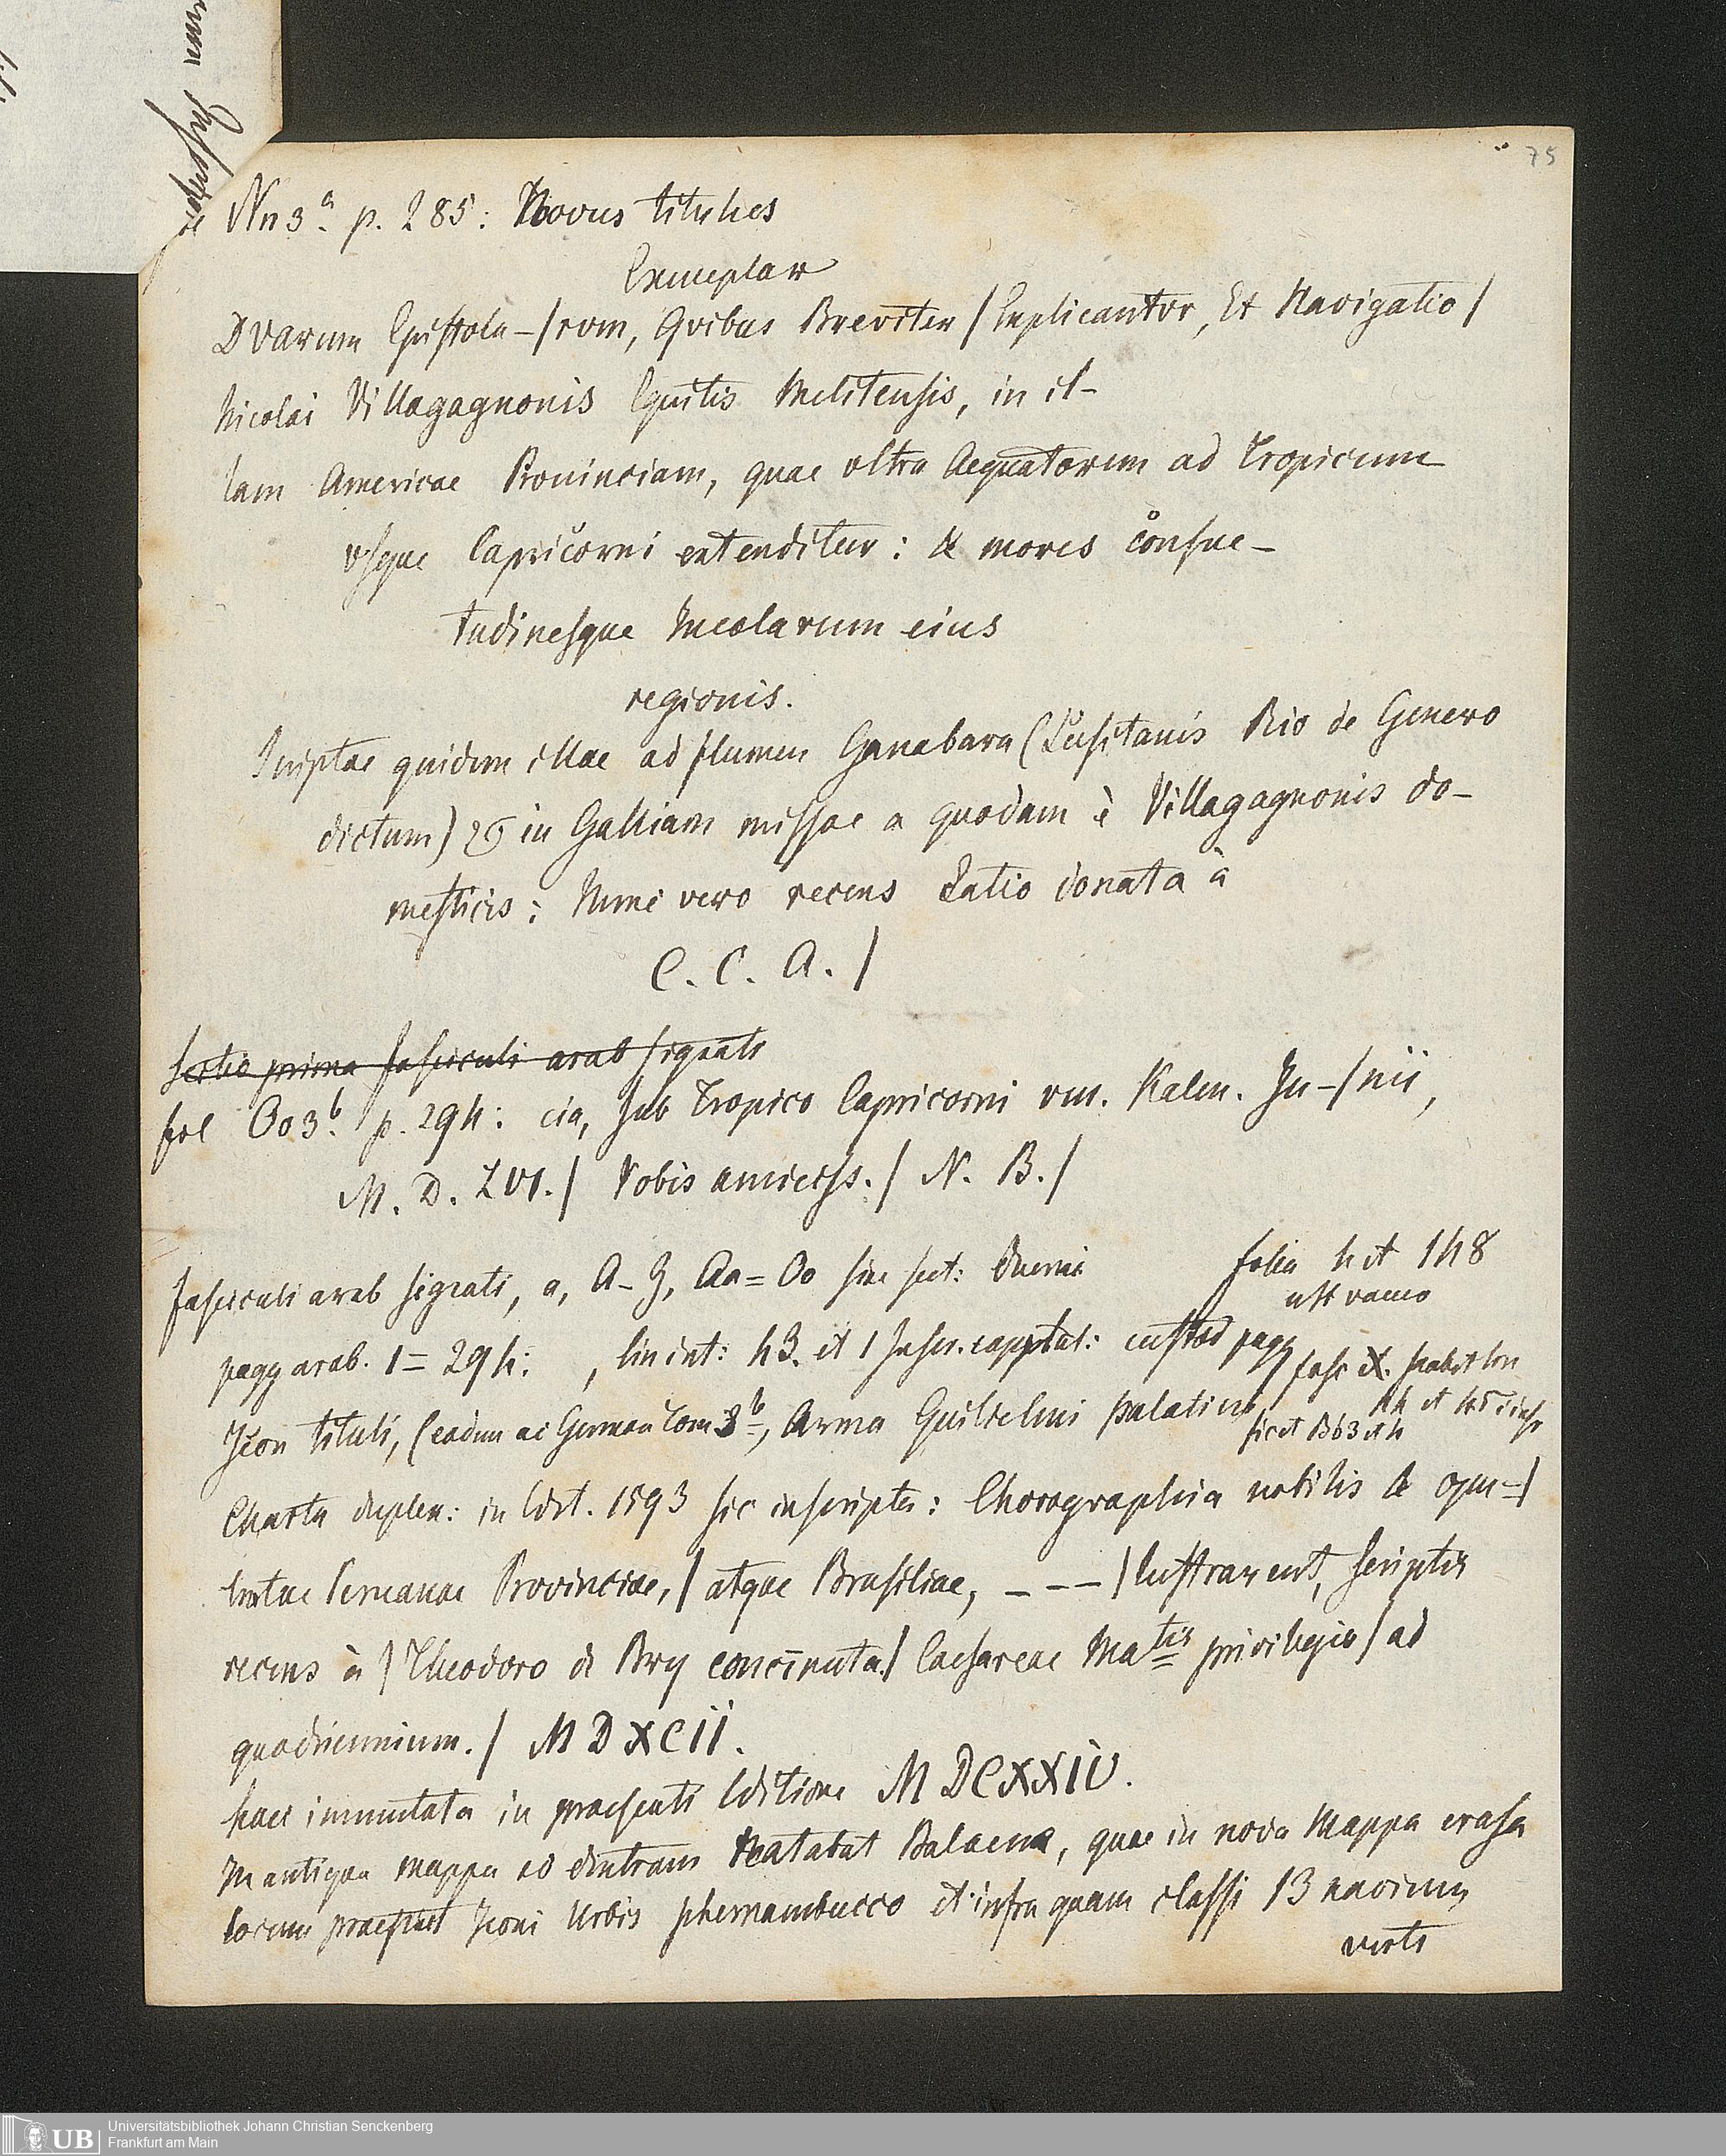 75
Nn 3.a p. 285: Novus titulus
Exemplar
DVarum Epistola-/rvm, Qvibus Breviter / Explicantvr, Et Navigatio /
Nicolai Villagagnonis Equitis Melitensis, in il-
lam Americae Prouinciam, quae vltra Aequatorem ad Tropicum
vsque Capricorni extenditur: & mores consue-
tudinesque Incolarum eius
regionis.
Scriptae quidem illae ad flumen Ganabara (Lusitanis Rio de Genero
dictum) & in Galliam missae a quodam è Villagagnonis do-
mesticis: Nunc vero recens Latio donata à
C. C. A. /
Sectio prima fasciculi arab signati
fol Oo3.b p. 294: cia, sub Tropico Capricorni viii. Kalen. Ju-/nii,
M. D. LVI. / Vobis amiciss. / N. B. /
fasciculi arab signati, a, A-Z, Aa=Oo sive sect: duerni
folia 4 et 148
ult vacuo
pagg arab. 1=294: , lin int: 43. et 1 Inscr. cappital: custod pagg
fasc
Icon tituli, (eadem ac German Tom 3b, Arma Guilielmi palatini,
sicut Bb3 et 4
Charta duplex: in Edit. 1593 sic inscripta: Chorographia nobilis & opu-/
lentae Peruanae Provinciae, / atque Brasiliae, --- / lustrarent, scriptis
recens à / Theodoro de Bry concinnata / Caesareae Matis privilegio / ad
quadriennium. / MDXCII.
haec immutata in praesenti Editione MDCXXIV.
In antiqua mappa ad dextram natabat Balaena, quae in nova Mappa erasa
locum praestat Iconi Urbis phernambucco et infra quam classi 13 navium
verte
UB
Universitätsbibliothek Johann Christian Senckenberg
Frankfurt am Main